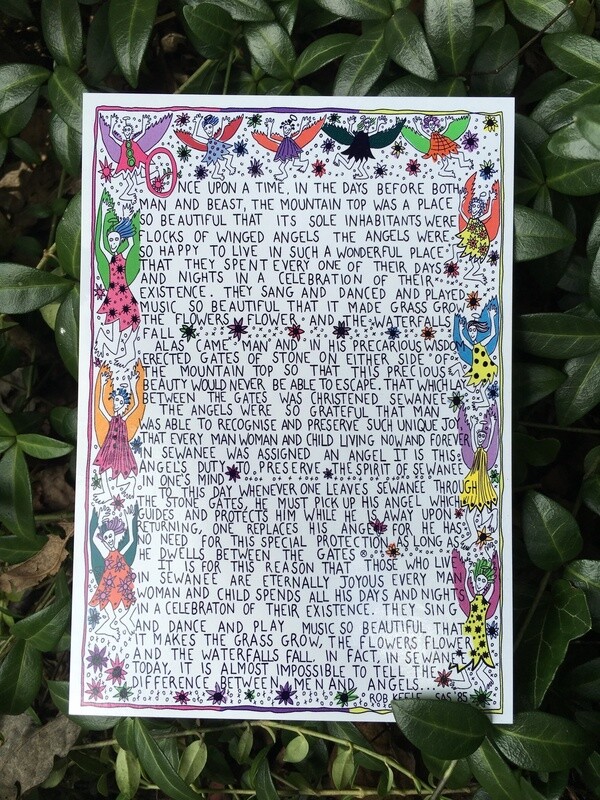 ONCE UPON A TIME, IN THE DAYS BEFORE BOTH
MAN AND BEAST, THE MOUNTAIN TOP WAS A PLACE
SO BEAUTIFUL THAT ITS SOLE INHABITANTS WERE
FLOCKS OF WINGED ANGELS THE ANGELS WERE
SO HAPPY TO LIVE IN SUCH A WONDERFUL PLACE
THAT THEY SPENT EVERY ONE OF THEIR DAYS
AND NIGHTS IN A CELEBRATION OF THEIR
EXISTENCE. THEY SANG AND DANCED AND PLAYED
MUSIC SO BEAUTIFUL THAT IT MADE GRASS GROW
THE FLOWERS FLOWER AND THE WATERFALLS
FALL
ALAS CAME MAN AND IN HIS PRECARIOUS WISDOM
ERECTED GATES OF STONE ON EITHER SIDE OF
THE MOUNTAIN TOP SO THAT THIS PRECIOUS
BEAUTY WOULD NEVER BE ABLE TO ESCAPE. THAT WHICH LAY
BETWEEN THE GATES WAS CHRISTENED SEWANEE
THE ANGELS WERE SO GRATEFUL THAT MAN
WAS ABLE TO RECOGNISE AND PRESERVE SUCH UNIQUE JOY
THAT EVERY MAN WOMAN AND CHILD LIVING NOW AND FOREVER
IN SEWANEE WAS ASSIGNED AN ANGEL IT IS THIS
ANGEL'S DUTY TO PRESERVE THE SPIRIT OF SEWANEE
IN ONE'S MIND
TO THIS DAY WHENEVER ONE LEAVES SEWANEE THROUGH
THE STONE GATES, HE MUST PICK UP HIS ANGEL WHICH
GUIDES AND PROTECTS HIM WHILE HE IS AWAY UPON
RETURNING, ONE REPLACES HIS ANGEL FOR HE HAS
NO NEED FOR THIS SPECIAL PROTECTION AS LONG AS
HE DWELLS BETWEEN THE GATES
IT IS FOR THIS REASON THAT THOSE WHO LIVE
IN SEWANEE ARE ETERNALLY JOYOUS EVERY MAN
WOMAN AND CHILD SPENDS ALL HIS DAYS AND NIGHTS
IN A CELEBRATON OF THEIR EXISTENCE. THEY SING
AND DANCE AND PLAY MUSIC SO BEAUTIFUL THAT
IT MAKES THE GRASS GROW, THE FLOWERS FLOWER
AND THE WATERFALLS FALL. IN FACT, IN SEWANEE
TODAY, IT IS ALMOST IMPOSSIBLE TO TELL THE
DIFFERENCE BETWEEN MEN AND ANGELS.....
ROB KEELE SAS 85